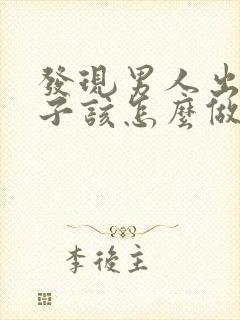 發現男人出
子該怎麼做
李後主